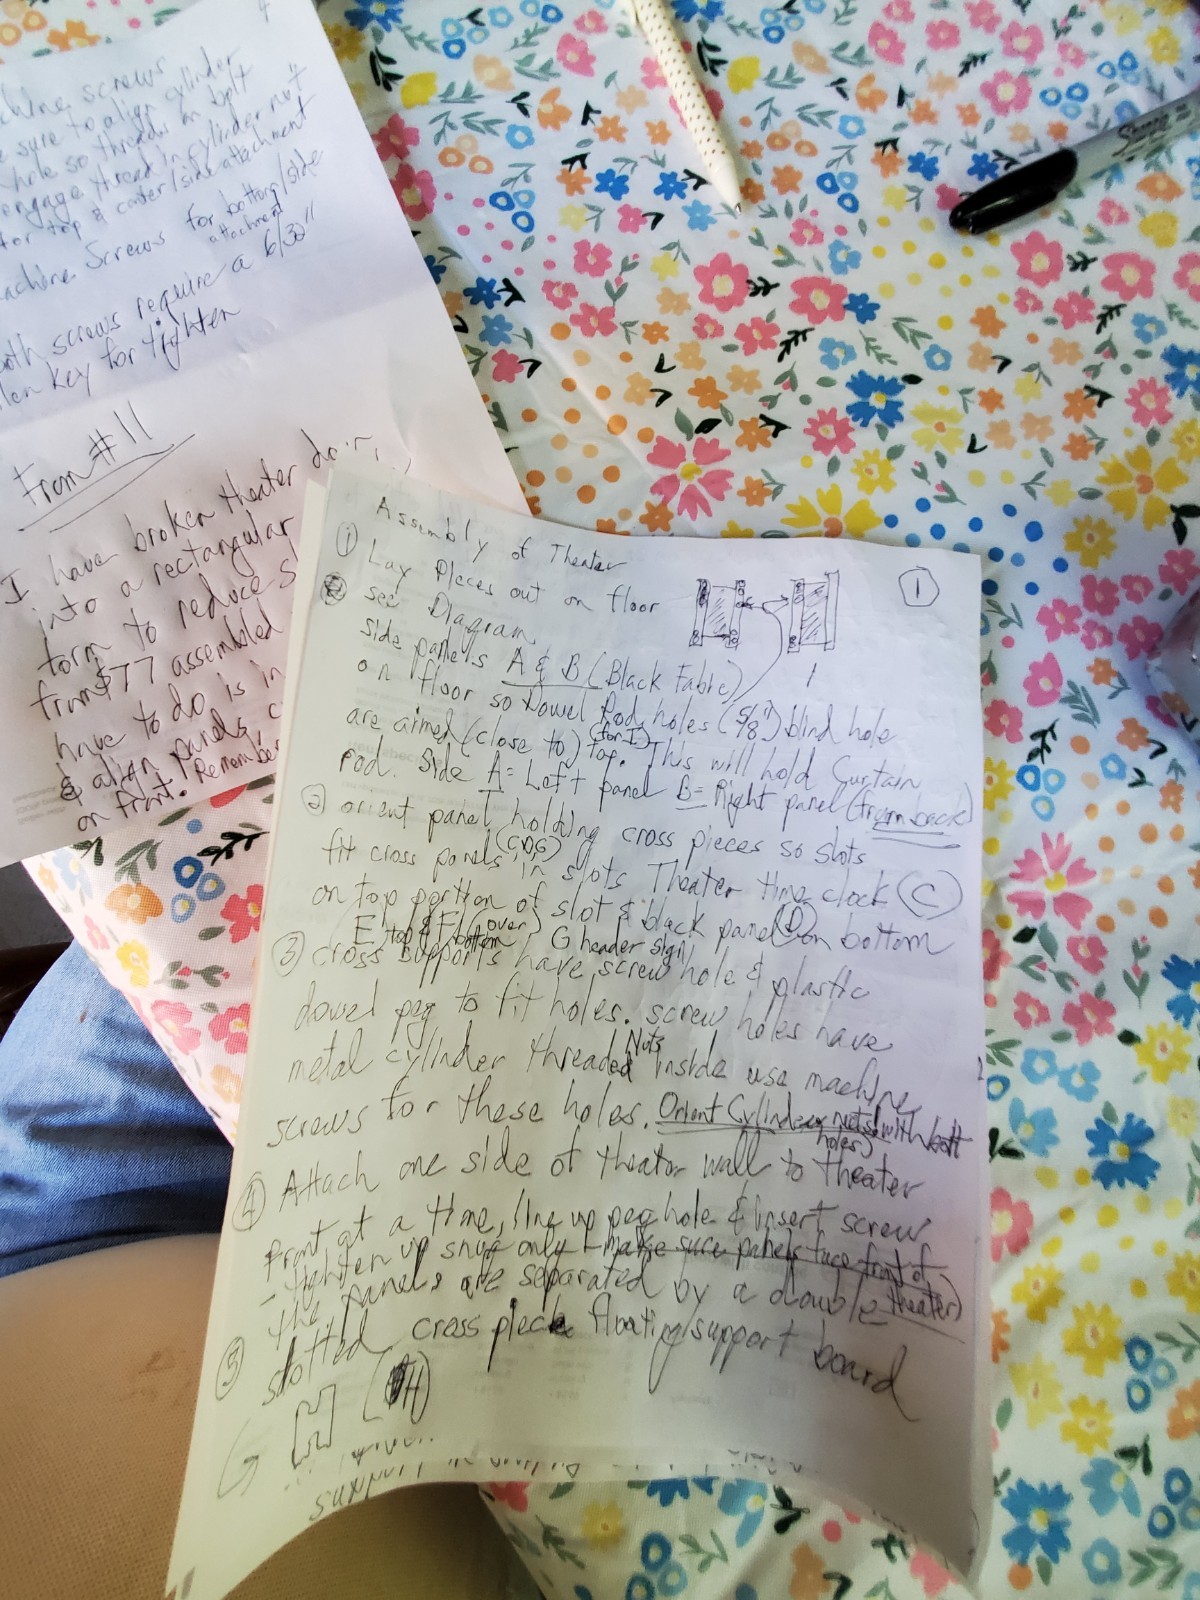 4
screws
sure to align cylinder
hole so threads on bolt
engage thread in cylinder nut
for top & center/side attachment
machine screws for bottom/side
attachment
both screws require a 6/32"
key for tighten
From #11
I have broken theater down
into a rectangular
form to reduce
from $77 assembled
have to do is in
& align panels,
on front. Remember
Assembly of Theater
①
① Lay pieces out on floor
see Diagram
Side panels A & B (Black Fabric)
on floor so Dowel Rod holes (5/8") blind hole
are aimed (close to) (for I) top. This will hold Curtain
rod. Side A = Left panel B = Right panel (from back)
② orient panel holding cross pieces so slots
(CDG)
fit cross panels in slots Theater time clock (C)
on top portion of slot & black panel (D) on bottom
E top & F bottom (over) G header sign
③ cross supports have screw hole & plastic
dowel peg to fit holes. screw holes have
metal cylinder threaded Nuts inside use machine
screws for these holes. Orient Cylinder nuts with bolt
holes)
④ Attach one side of theator wall to theater
front at a time, line up peg hole & insert screw
- tighten up snug only - make sure panels face front of
theater)
the panels are separated by a double
⑤ slotted cross piece floating/support board
(H)
support